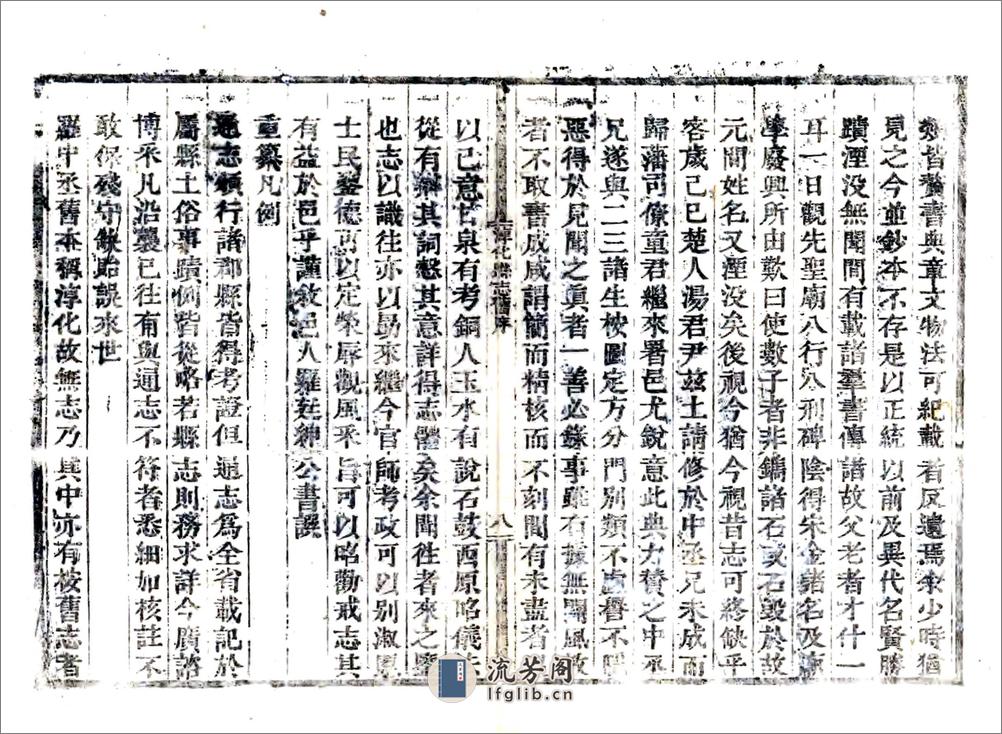 類皆鰲書典章文物法可紀載者反遺焉余少時猶
見之今並鈔本不存是以正統以前及異代名賢勝
蹟湮没無聞間有載諸羣書傳諸故父老者才什一
耳一日觀先聖廟八行八刑碑陰得宋金諸名及
學廢興所由歎曰使數子者非鐫諸石或石毀於故
元間姓名又湮没矣後視今猶今視昔志可終缺乎
客歲己巳楚人湯君尹兹土請修於中丞兄未成而
歸藩司僚童君繼來署邑尤銳意此典力賛之中丞
兄遂與二三諸生按圖定方分門別類不虚譽不隱
惡得於見聞之眞者一善必錄事雖有據無關風教
者不取書成咸謂簡而精核而不刻間有未盡者
淳化縣志舊序
八
以己意甘泉有考銅人玉水有說石鼓西原昭儀
從有辯其詞慤其意詳得志體矣余聞往者來之鑒
也志以識往亦以勗來繼今官師考政可以别淑慝
士民鑒德可以定榮辱觀風采旨可以昭勸戒志其
有益於邑乎謹敘邑人羅廷紳公書譔
重纂凡例
通志頒行諸郡縣皆得考證但通志爲全省載記於
屬縣土俗事蹟例皆從略若縣志則務求詳今廣諮
博釆凡沿襲已往有與通志不符者悉細加核註不
敢保殘守缺貽誤來世
羅中丞舊本稱淳化故無志乃其中亦有按舊志者
流芳阁
lfglib.cn